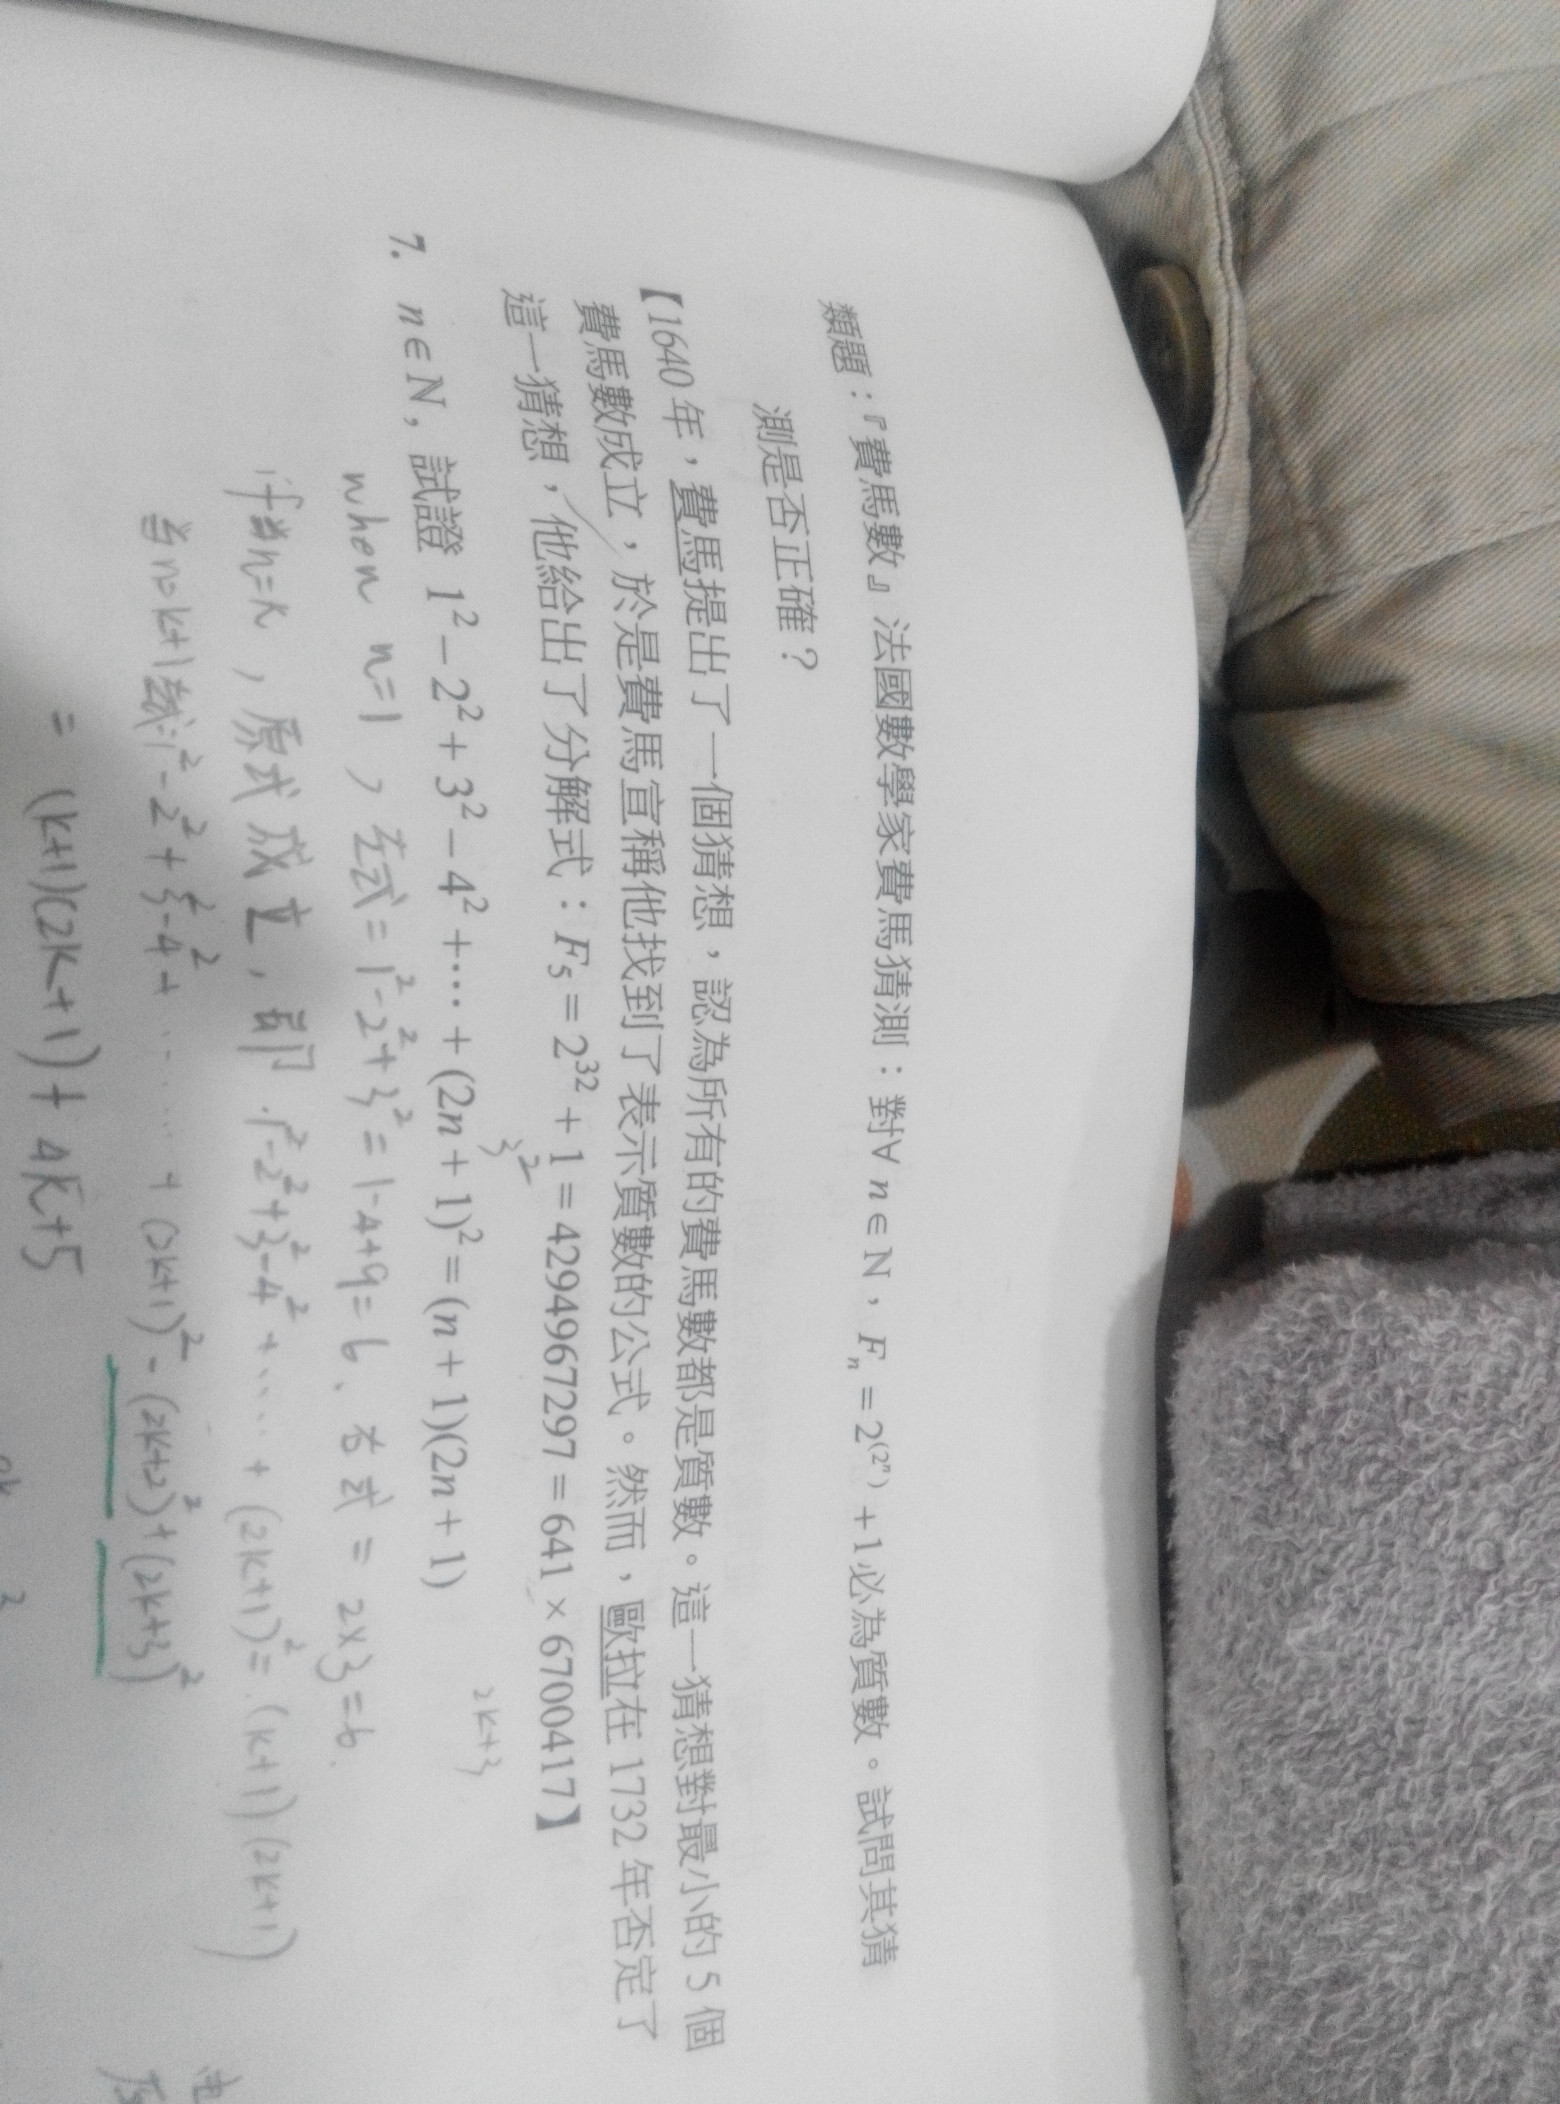 類題：『費馬數』法國數學家費馬猜測：對∀ n∈N，Fₙ = 2^(2ⁿ) +1必為質數。試問其猜
測是否正確？
【1640 年，費馬提出了一個猜想，認為所有的費馬數都是質數。這一猜想對最小的 5 個
費馬數成立，於是費馬宣稱他找到了表示質數的公式。然而，歐拉在 1732 年否定了
這一猜想，他給出了分解式：F₅ = 2³² + 1 = 4294967297 = 641 × 6700417】
3²
2k+3
7. n∈N，試證 1² − 2² + 3² − 4² + ⋯ + (2n + 1)² = (n + 1)(2n + 1)
when n=1，左式 = 1² - 2² + 3² = 1 - 4 + 9 = 6、右式 = 2×3 = 6.
n=k，原式成立，即 1² - 2² + 3² - 4² + ⋯ + (2k+1)² = (k+1)(2k+1)
当 n=k+1 1² - 2² + 3² - 4² + ⋯⋯ + (2k+1)² - (2k+2)² + (2k+3)²
= (k+1)(2k+1) + 4k+5